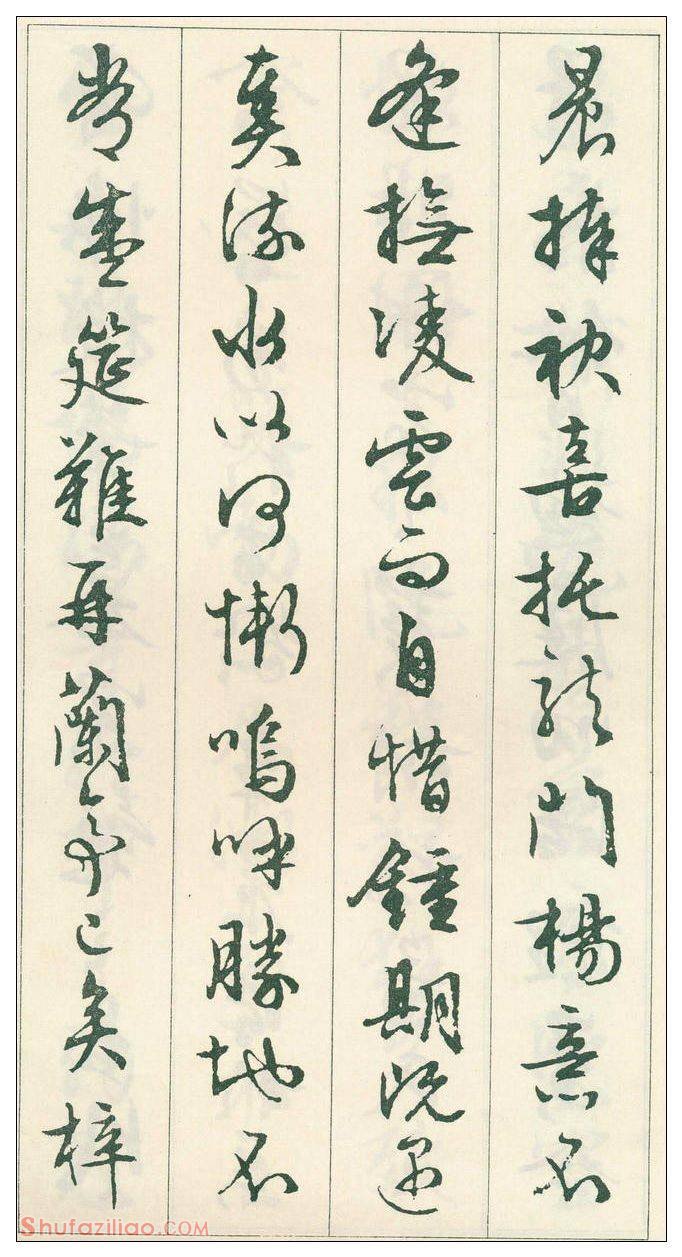 晨捧袂喜托龍門楊意不
逢撫凌雲而自惜鍾期既遇
奏流水以何慚嗚呼勝地不
常盛筵難再蘭亭已矣梓
Shufaziliao.COM